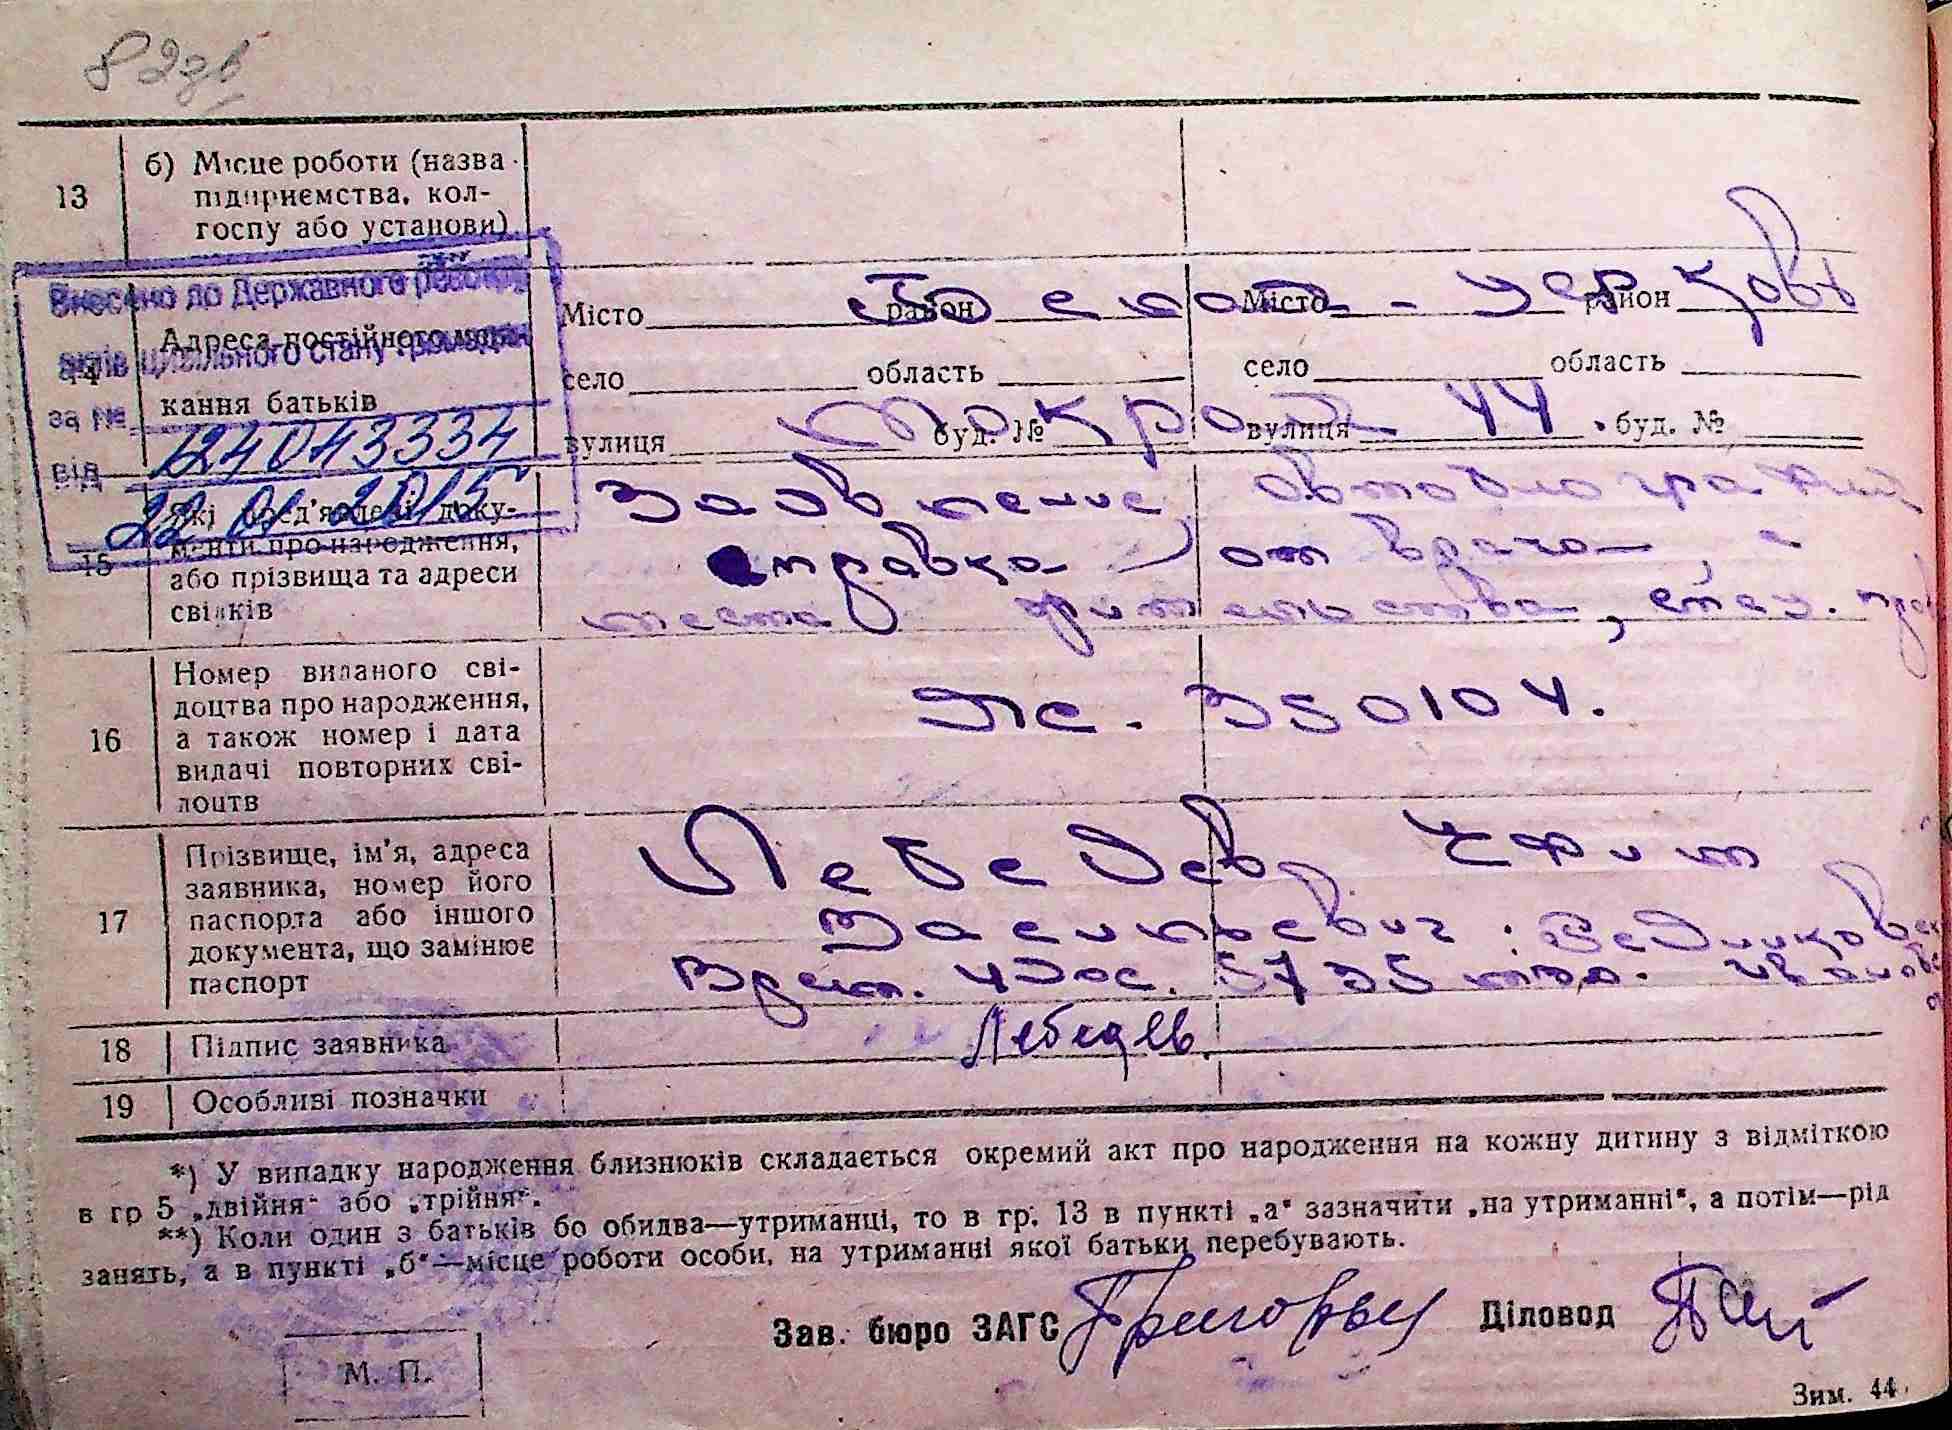 82зв
13
б) Місце роботи (назва
підприємства, кол-
госпу або установи)
Внесено до Державного реєстру
актів цивільного стану громадян
за № 124043334
від 22 01 2015
14
Адреса постійного меш-
кання батьків
Місто район Місто район
Бело - Церковь
село область село область
вулиця буд. № вулиця буд. №
Мокрая 44.
15
Які пред'явлені доку-
менти про народження,
або прізвища та адреси
свідків
Заявление, автобиография
справка от врача, с
места жительства,
16
Номер виданого сві-
доцтва про народження,
а також номер і дата
видачі повторних сві-
доцтв
350104.
17
Прізвище, ім'я, адреса
заявника, номер його
паспорта або іншого
документа, що замінює
паспорт
Лебедев Ефим
Васильевич.
Врем. удос. 5735
18
Підпис заявника
Лебедев.
19
Особливі позначки
*) У випадку народження близнюків складається окремий акт про народження на кожну дитину з відміткою
в гр 5 „двійня“ або „трійня“.
**) Коли один з батьків бо обидва—утриманці, то в гр. 13 в пункті „а“ зазначити „на утриманні“, а потім—рід
занять, а в пункті „б“—місце роботи особи, на утриманні якої батьки перебувають.
Зав. бюро ЗАГС Діловод
М. П.
Зим. 44